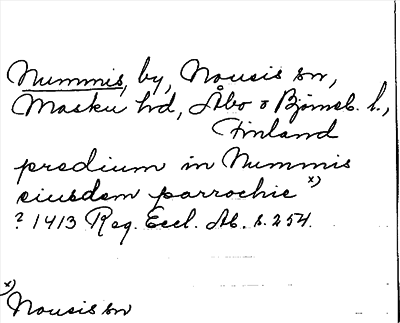 Nummis, by, Nousis sn,
Masku hd, Åbo o Björneb. l.,
Finland
predium in Nummis
eiusdem parrochie x)
? 1413 Reg. Eccl. Ab. s. 254.
x) Nousis sn